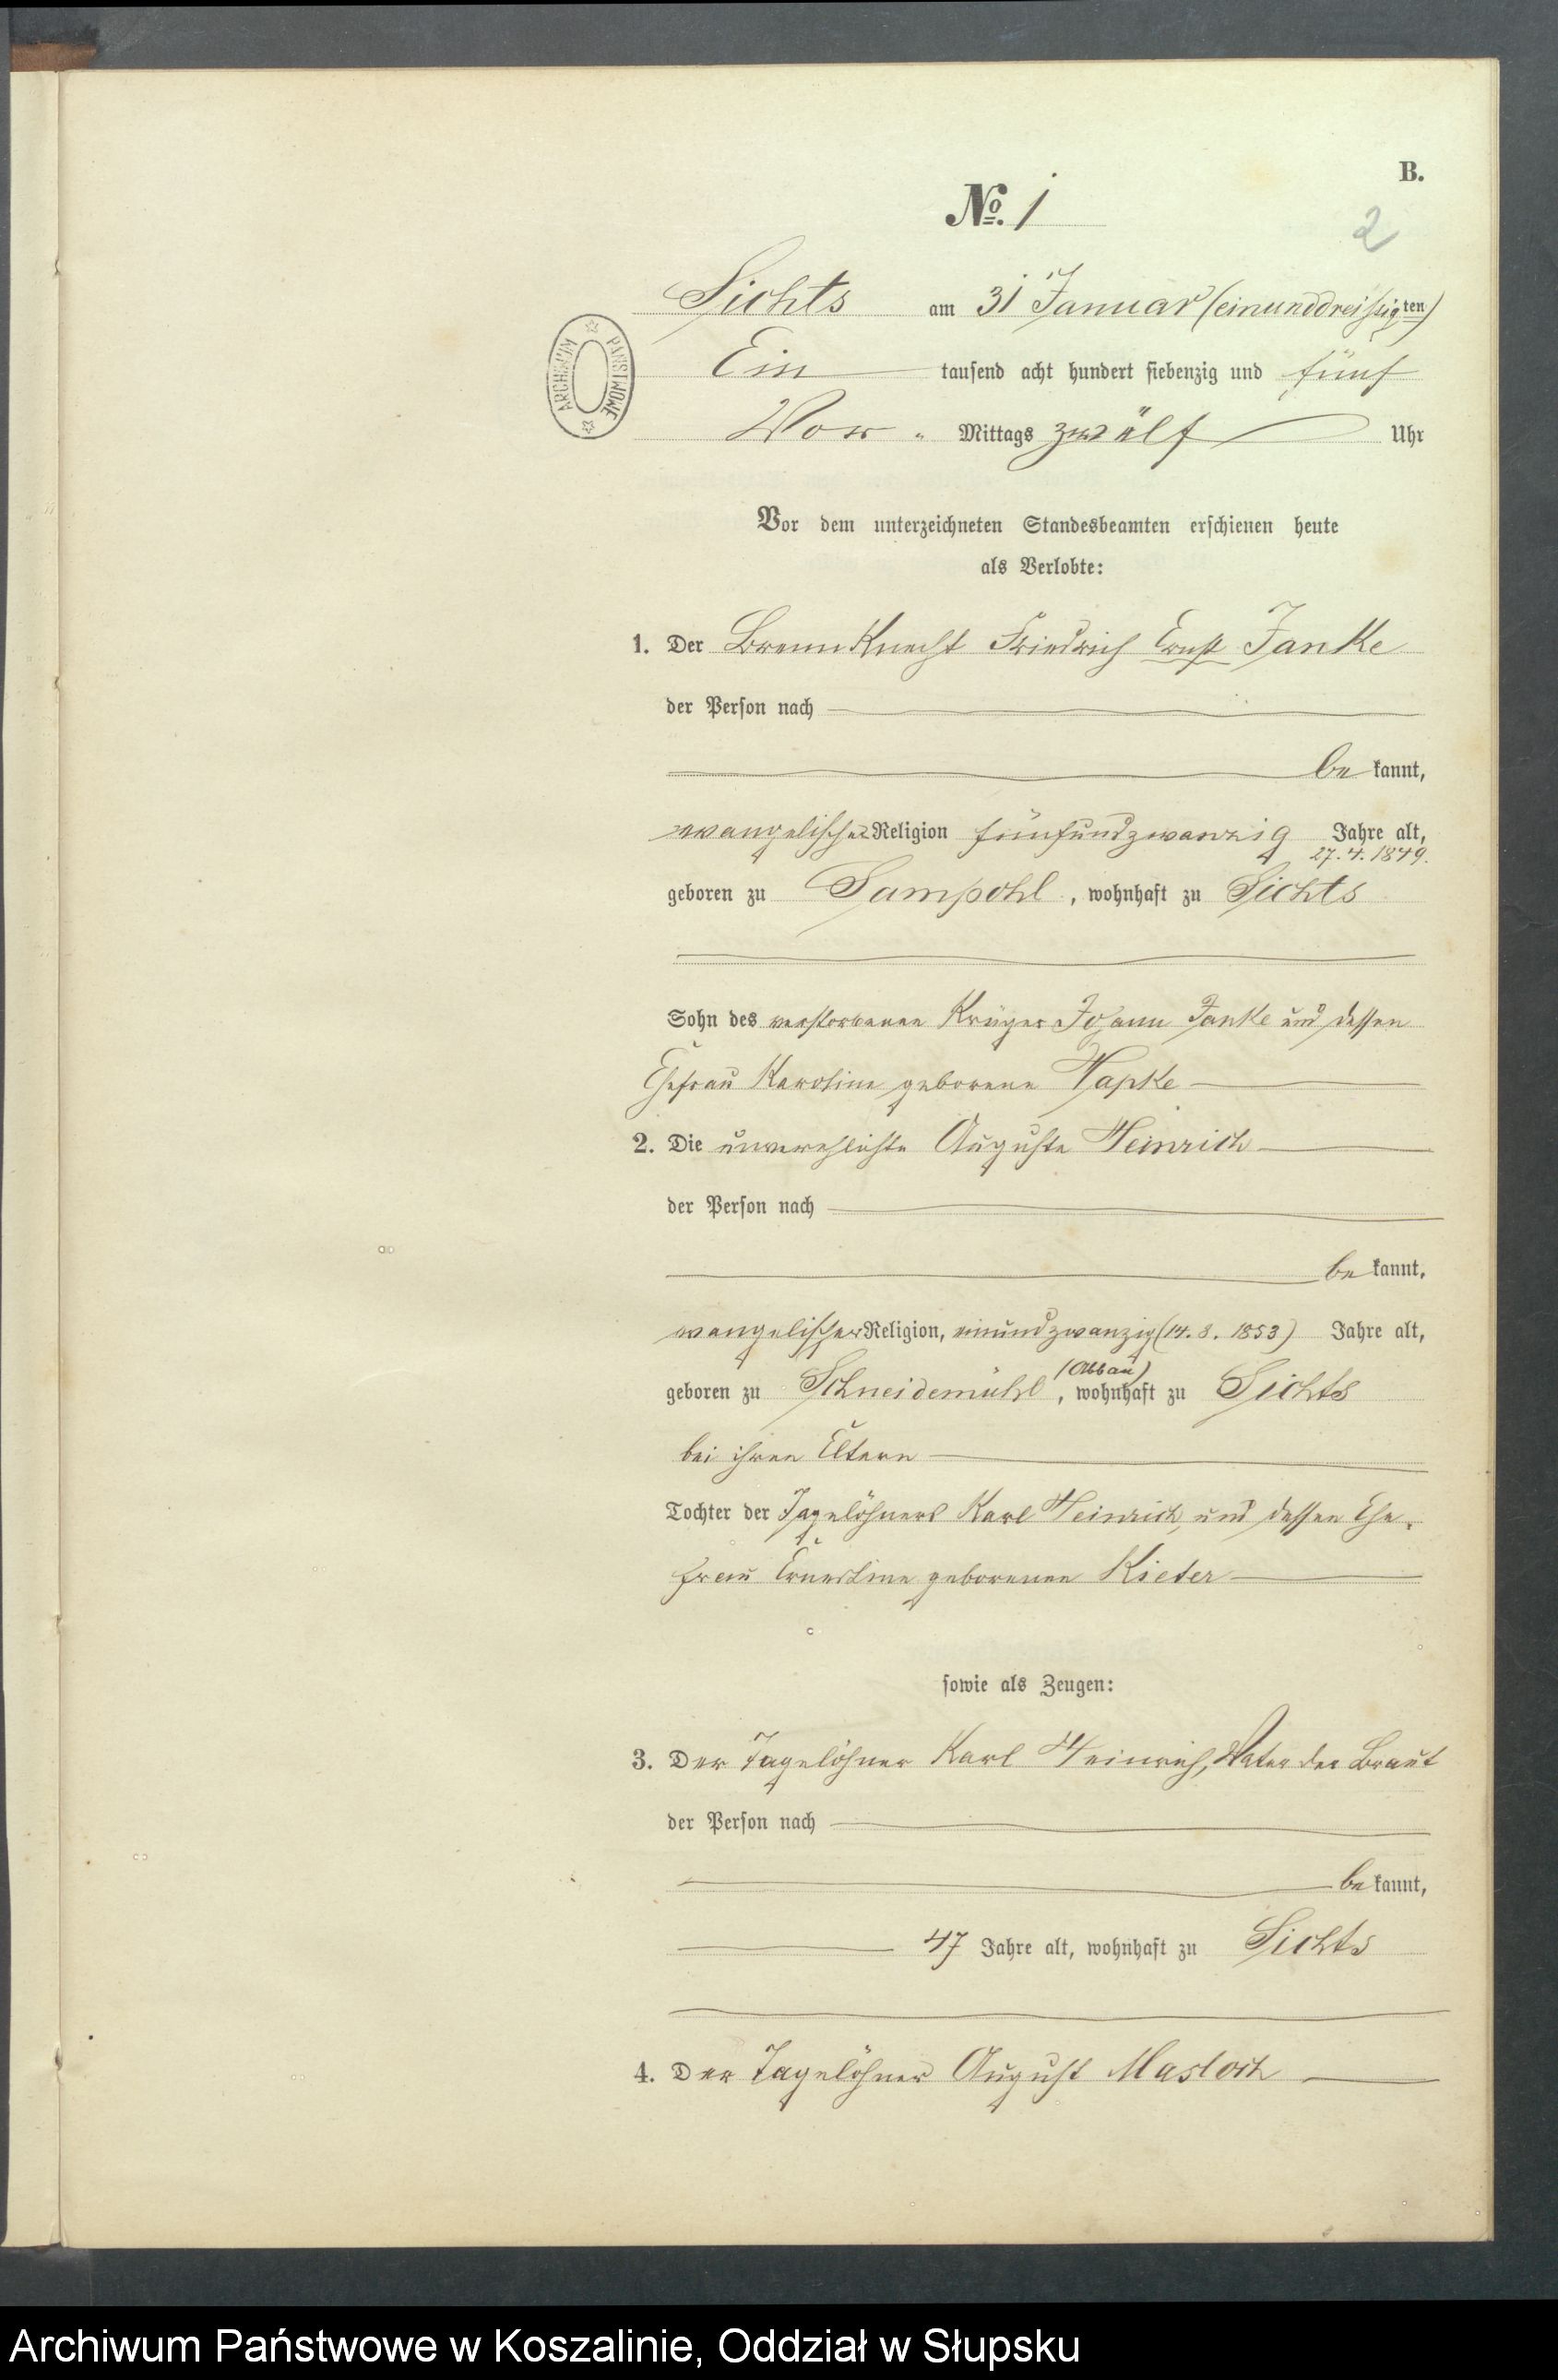 B.
No. 1
2
Sichts am 31 Januar (einunddreißigten)
Ein tausend acht hundert siebenzig und fünf
Vor - Mittags zwölf Uhr
ARCHIWUM PAŃSTWOWE
Vor dem unterzeichneten Standesbeamten erschienen heute
als Verlobte:
1. Der Brennknecht Friedrich Ernst Janke
der Person nach
be kannt,
evangelischer Religion fünfundzwanzig Jahre alt,
27. 4. 1849.
geboren zu Sampohl, wohnhaft zu Sichts
Sohn des verstorbenen Krüger Johann Janke und dessen
Ehefrau Karoline geborene Papke
2. Die unverehlichte Auguste Heinrich
der Person nach
be kannt,
evangelischer Religion, einundzwanzig (14. 8. 1853) Jahre alt,
(Abbau)
geboren zu Schneidemühl, wohnhaft zu Sichts
bei ihren Eltern
Tochter der Tagelöhners Karl Heinrich, und dessen Ehe-
frau Ernestine geborenen Kieter
sowie als Zeugen:
3. Der Tagelöhner Karl Heinrich, Vater der Braut
der Person nach
be kannt,
47 Jahre alt, wohnhaft zu Sichts
4. Der Tagelöhner August
Archiwum Państwowe w Koszalinie, Oddział w Słupsku